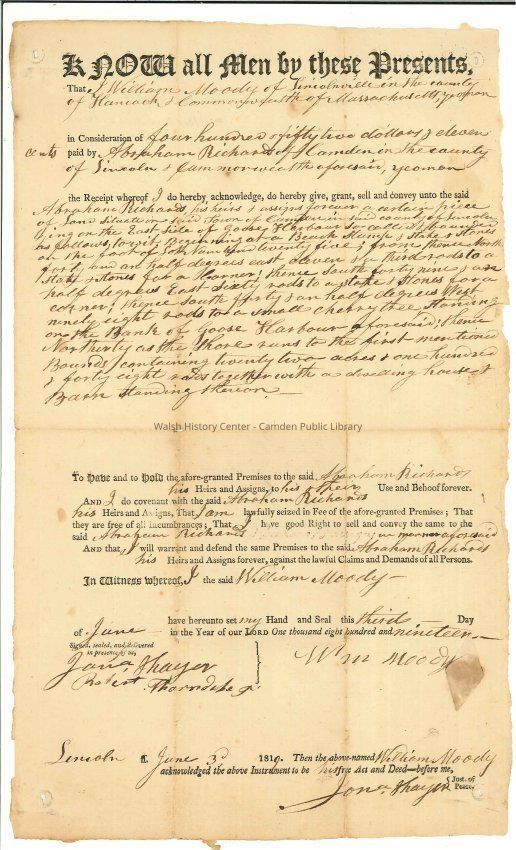 KNOW all Men by these Presents,
That I William Moody of Lincolnville in the county
of Hancock & Commonwealth of Massachusetts, yeoman
in Consideration of four hundred & fifty two dollars & eleven
cents paid by Abraham Richards of Camden in the county
of Lincoln & Commonwealth aforesaid, yeoman
the Receipt whereof I do hereby acknowledge, do hereby give, grant, sell and convey unto the said
Abraham Richards, his heirs & assigns forever a certain piece
of Land situate in said Town of Camden in said county of Lincoln
lying on the East side of Goose Harbour so called & bounded
as follows, to wit, Beginning at a Beach Stone & Stake & Stones
on the foot of Lott Number twenty five; from thence North
forty and an half degrees east eleven & a third rods to a
Stake & Stones for a corner; thence South forty nine & an
half degrees East Sixty rods to a Stake & Stones for a
corner; thence South forty & an half degrees West
ninety eight rods to a small cherry tree standing
on the Bank of Goose Harbour aforesaid; thence
Northerly as the Shore runs to the first mentioned
Bounds, containing twenty two acres & one hundred
& forty eight rods together with a dwelling house &
Barn standing thereon
Walsh History Center - Camden Public Library
To Have and to Hold the afore-granted Premises to the said Abraham Richards
his Heirs and Assigns, to his & their Use and Behoof forever.
AND I do covenant with the said Abraham Richards
his Heirs and Assigns, That I am lawfully seized in Fee of the afore-granted Premises; That
they are free of all Incumbrances; That I have good Right to sell and convey the same to the
said Abraham Richards in manner aforesaid
And that I will warrant and defend the same Premises to the said Abraham Richards
his Heirs and Assigns forever, against the lawful Claims and Demands of all Persons.
In Witness whereof, I the said William Moody
have hereunto set my Hand and Seal this third Day
of June in the Year of our LORD One thousand eight hundred and nineteen
Signed, sealed, and delivered
in presence of us,
Jona Thayer
Robert Thorndike Jr.
Wm Moody
Lincoln ss. June 3d 1819. Then the above-named William Moody
acknowledged the above Instrument to be his free Act and Deed—before me,
Jona Thayer Just. of
Peace.